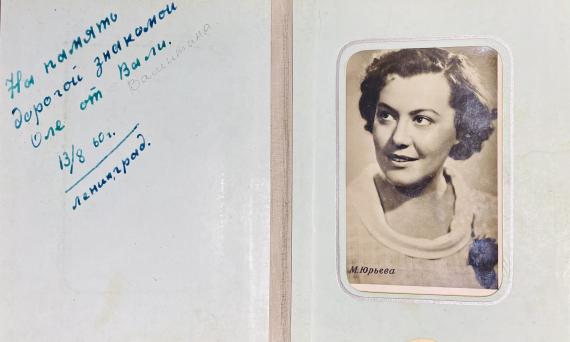 На память
дорогой знакомой
Оле от Вали.
Валентина
13/8 60г.
Ленинград.
М.Юрьева